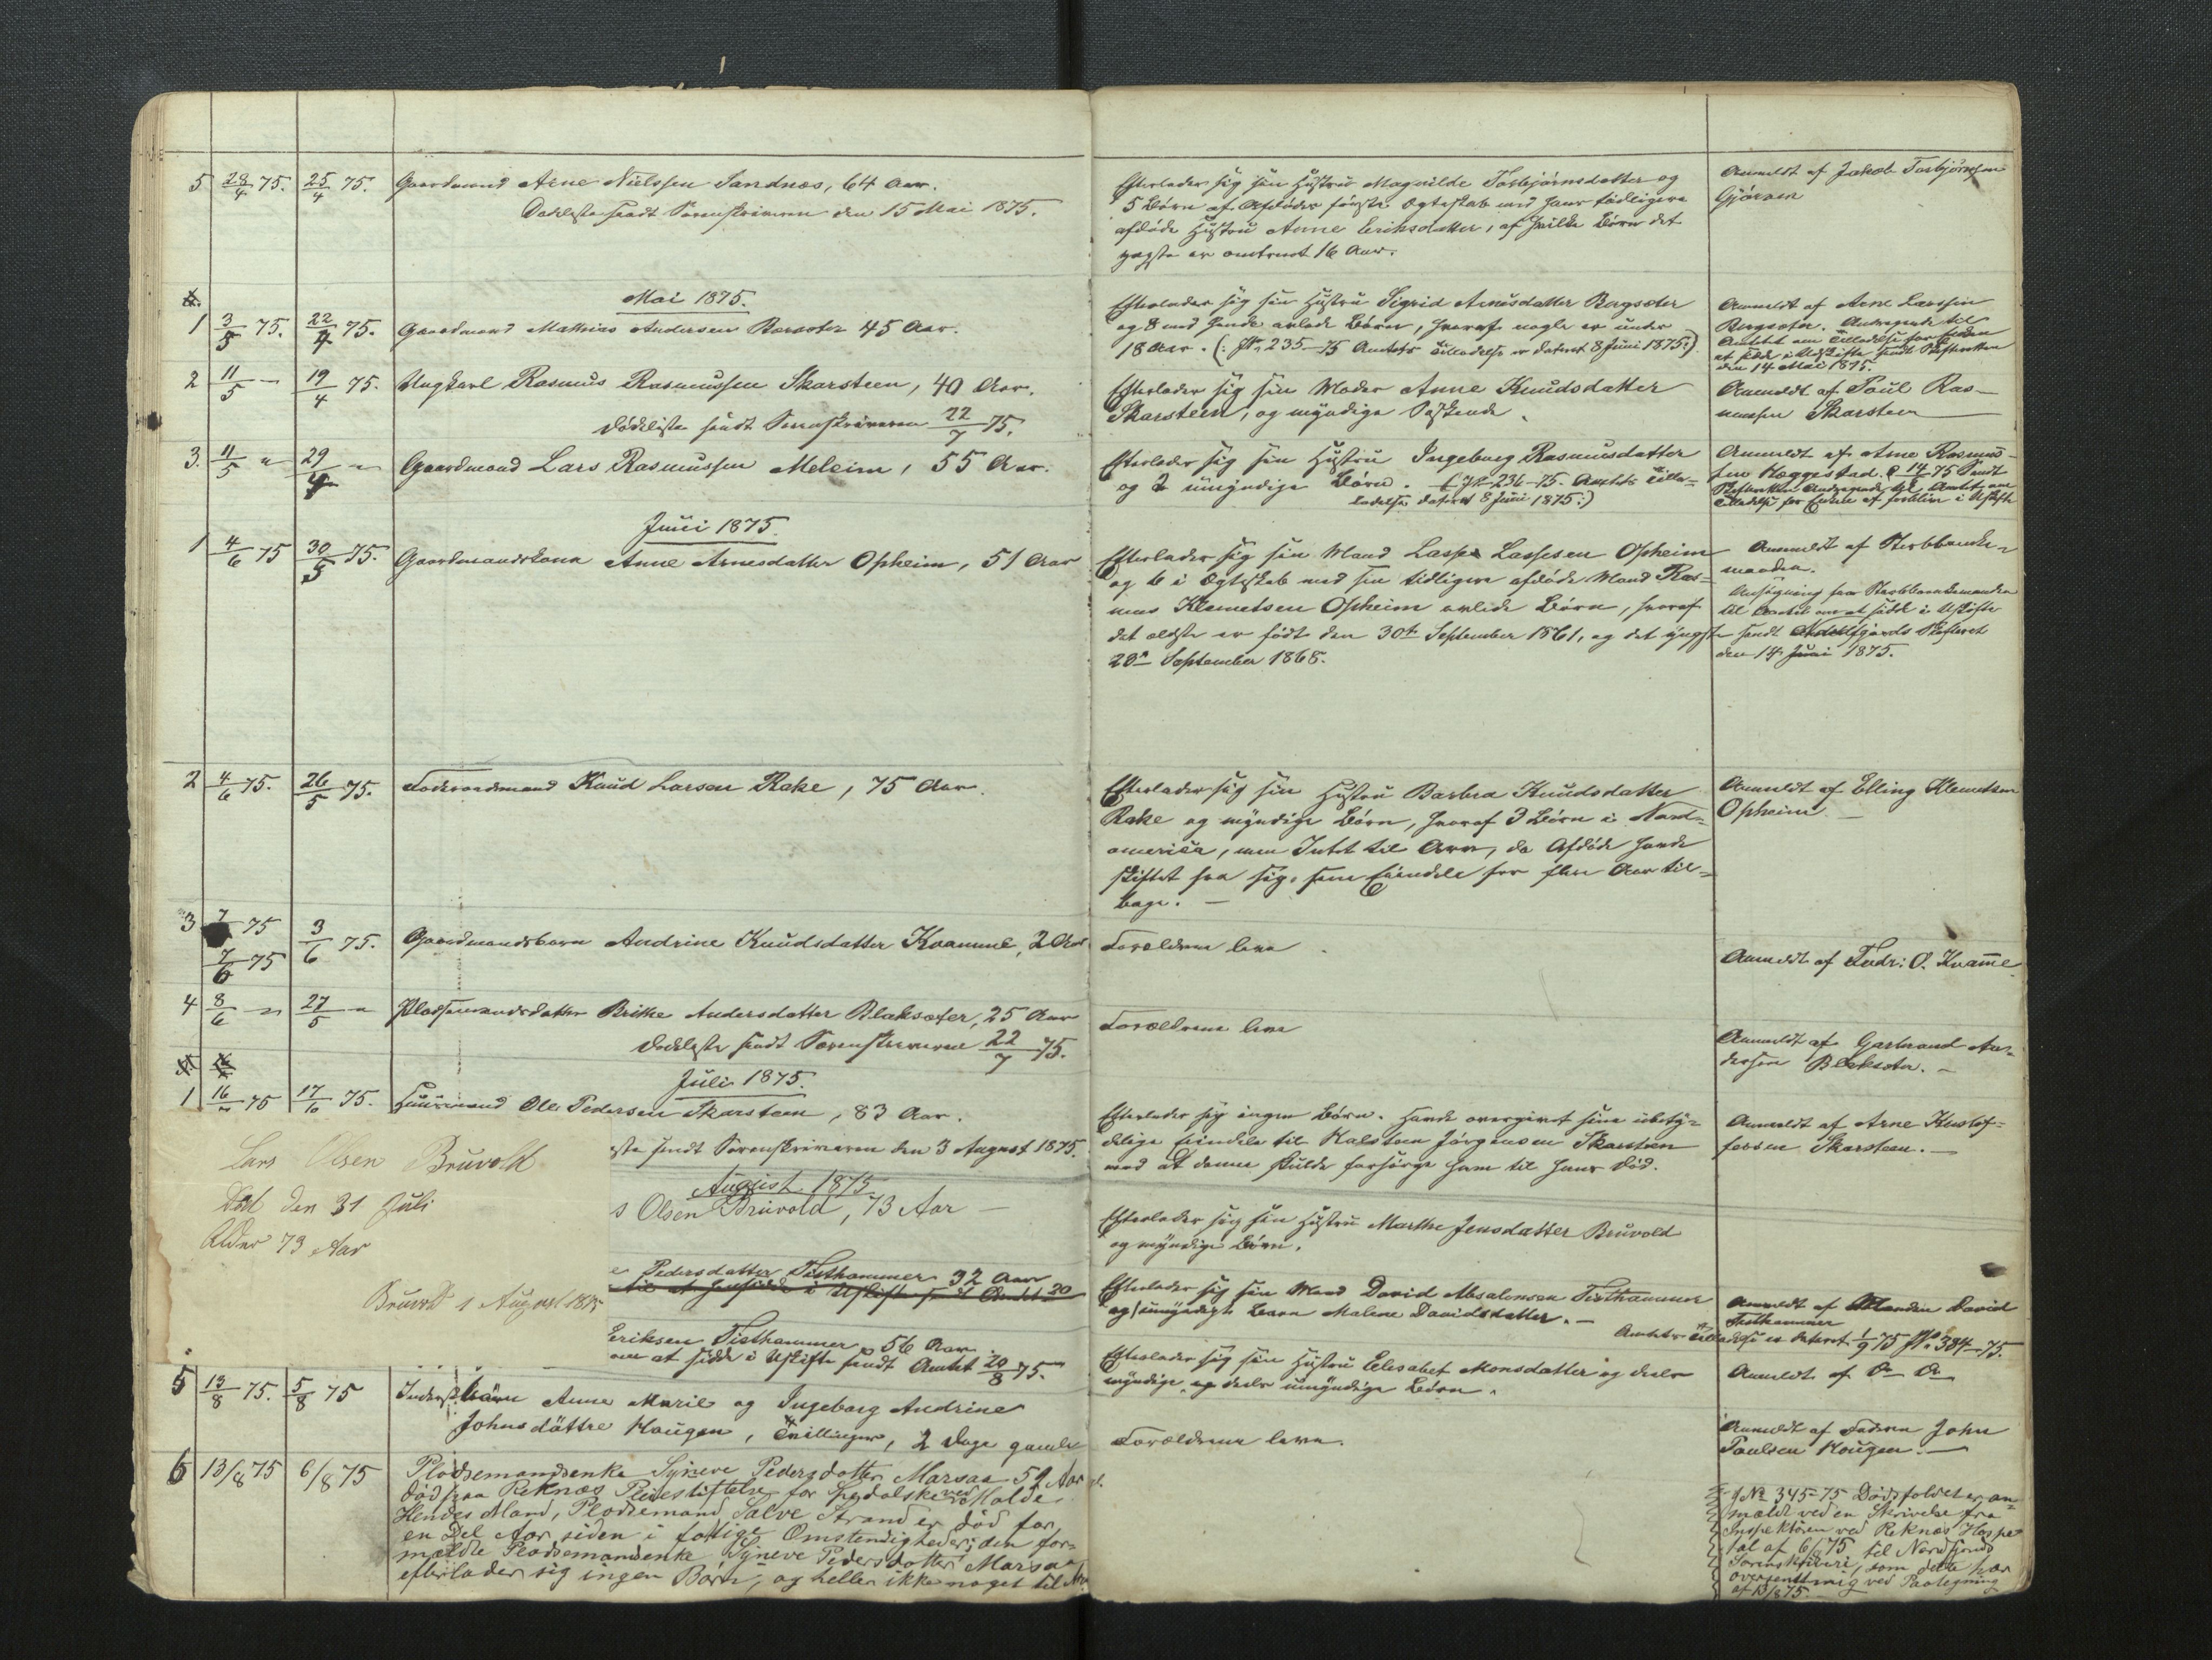 5 28/4 75. 25/4 75. Gaardmand Arne Nielssen Sandnæs, 64 Aar.
Dødsliste sendt Sorenskriveren den 15 Mai 1875.
Efterlader sig sin Hustru Magnilde Torbjørnsdatter og
5 Børn af Afdødes første Ægteskab med hans tidligere
afdøde Hustru Anne Eriksdatter, af hvilke Børn det
yngste er omtrent 16 Aar.
Anmeldt af Jakob Torbjørnsen
Gjørven
Mai 1875.
1 3/5 75. 22/4 75. Gaardmand Mathias Andersen Bergseter 45 Aar.
Efterlader sig sin Hustru Sigrid Arnesdatter Bergseter
og 8 med hende avlede Børn, hvoraf nogle er under
18 Aar. (: No 235-75 Amtets Tilladelse er dateret 8 Juni 1875:)
Anmeldt af Arne Larssen
Bergseter. Andragende til
Amtet om Tilladelse for Enken
at sidde i Uskifte sendt Skifteretten
den 14 Mai 1875.
2 11/5 — 19/4 75. Ungkarl Rasmus Rasmussen Skarsteen, 40 Aar.
Dødsliste sendt Sorenskriveren 22/7 75.
Efterlader sig sin Moder Anne Knudsdatter
Skarsteen, og myndige Søskende.
Anmeldt af Poul Ras-
mussen Skarsteen
3. 11/5 " 29/4 — Gaardmand Lars Rasmussen Meleim, 55 Aar.
Efterlader sig sin Hustru Ingeborg Rasmusdatter
og 2 umyndige Børn. (: No 236-75. Amtets Tilla-
ladelse dateret 8 Juni 1875:)
Anmeldt af Arne Rasmus-
sen Heggestad. 14/5 75 sendt
Skifteretten Andragende til Amtet om
Tilladelse for Enken at forblive i Uskifte
Juni 1875.
1 4/6 75 30/5 75. Gaardmandskone Anne Arnesdatter Opheim, 51 Aar
Efterlader sig sin Mand Lasse Lassesen Opheim
og 6 i Ægteskab med sin tidligere afdøde Mand Ras-
mus Klemetsen Opheim avlede Børn, hvoraf
det ældste er født den 30te September 1861, og det yngste
28de September 1868.
Anmeldt af Sterbboenke-
manden.
Ansøgning fra Sterbboenkemanden
til Amtet om at sidde i Uskifte
sendt Nordfjords Skifteret
den 14 Juni 1875.
2 4/6 75. 26/5 75. Føderaadsmand Knud Larsen Rake, 75 Aar.
Efterlader sig sin Hustru Barbra Knudsdatter
Rake og myndige Børn, hvoraf 3 Børn i Nord-
amerika, men Intet til Arv, da Afdøde havde
skiftet fra sig sine Eiendele for flere Aar til-
bage. —
Anmeldt af Elling Klemetsen
Opheim. —
3 7 75
7/6 75 3/6 75. Gaardmandsbarn Andrine Knudsdatter Kvamme, 2 Aar
Forældrene leve.
Anmeldt af Fredr: O. Kvamme
4 8/6 — 27/5 — Pladsemandsdatter Brithe Andersdatter Blaksæter, 25 Aar
Dødsliste sendt Sorenskriveren 22/7 75.
Forældrene leve
Anmeldt af Gartmand An-
dersen Blaksæter. —
Juli 1875.
1 16/7 75 17/6 75. Huusmand Ole Pedersen Skarsteen, 83 Aar.
ste sendt Sorenskriveren den 3 August 1875.
Efterlader sig ingen Børn. Havde overgivet sine ubety-
delige Eiendele til Kalsteen Jørgensen Skarsteen
mod at denne skulde forsørge ham til hans Død.
Anmeldt af Arne Kristof-
fersen Skarsteen. —
Lars Olsen Bruvold
Død den 31 Juli
Alder 73 Aar
Bruvold 1 August 1875
August 1875.
s Olsen Bruvold, 73 Aar —
Efterlader sig sin Hustru Marthe Jensdatter Bruvold
og myndige Børn.
e Pedersdatter Tisthammer 32 Aar
Efterlader sig sin Mand David Absalonsen Tisthammer
og 1 umyndigt Barn Malene Davidsdatter. —
Amtets Tilladelse er dateret 1/9 75 No 384-75.
Anmeldt af Manden David
Tisthammer
Eriksen Tisthammer 56 Aar
om at sidde i Uskifte sendt Amtet 20/8 75.
Efterlader sig sin Hustru Elisabet Monsdatter og deels
myndige og deels umyndige Børn.
Anmeldt af D— D—
5 13/8 75. 5/8 75 Inderst børn Anne Marie og Ingeborg Andrine
Johnsdøttre Haugen, Tvillinger, 2 Dage gamle
Forældrene leve.
Anmeldt af Faderen John
Paulsen Haugen. —
6 13/8 75 6/8 75 Pladsemandsenke Synneve Pedersdatter Marsaa 59 Aar gl.
død paa Reknæs Pleiestiftelse for Spedalske ved Molde.
Hendes Mand, Pladsemand Salve Strand er død for
en Del Aar siden i fattige Omstendigheder; den for-
mældte Pladsemandsenke Synneve Pedersdatter Marsaa
efterlader sig ingen Børn, og heller ikke noget til Arv
J No 345-75 Dødsfaldet er an-
meldt ved en Skrivelse fra
Inspektøren ved Reknæs Hospi-
tal af 6/8 75 til Nordfjords
Sorenskriveri, som dette har
oversendt mig ved Paategning
af 13/8 75.